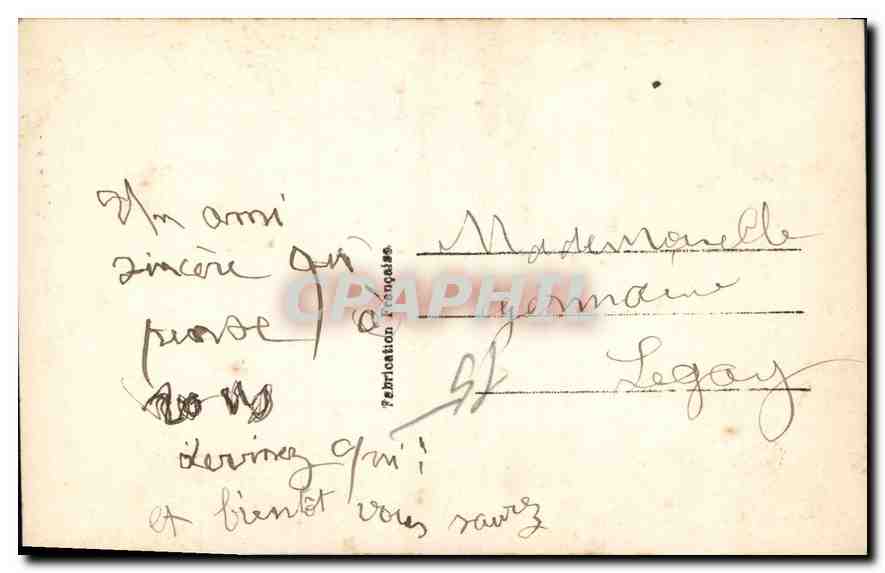 Un ami
sincère qui
pense à
vous
devinez qui!
et bientôt vous saurez
Fabrication Française
Mademoiselle
Germaine
Legay
CPAPHIL